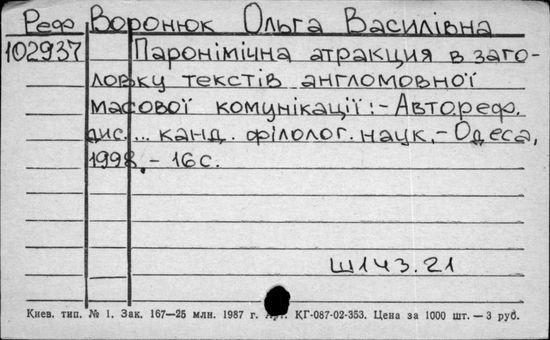 Реф Воронюк Ольга Василівна
102937 Паронімічна атракция в заго-
ловку текстів англомовної
масової комунікації:- Автореф.
дис... канд. філолог. наук.- Одеса,
1998.- 16 с.
Ш143.21
Киев. тип. № 1. Зак. 167—25 млн. 1987 г. КГ-087-02-353. Цена за 1000 шт. — 3 руб.